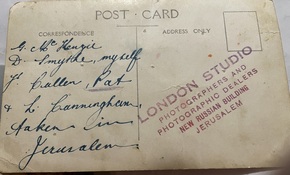 POST CARD
CORRESPONDENCE
ADDRESS ONLY
G. McKenzie
D. Smythe, myself
F. Cullen, Pat
& L. Cunningham,
taken in
Jerusalem
LONDON STUDIO
PHOTOGRAPHERS AND
PHOTOGRAPHIC DEALERS
NEW RUSSIAN BUILDING
JERUSALEM